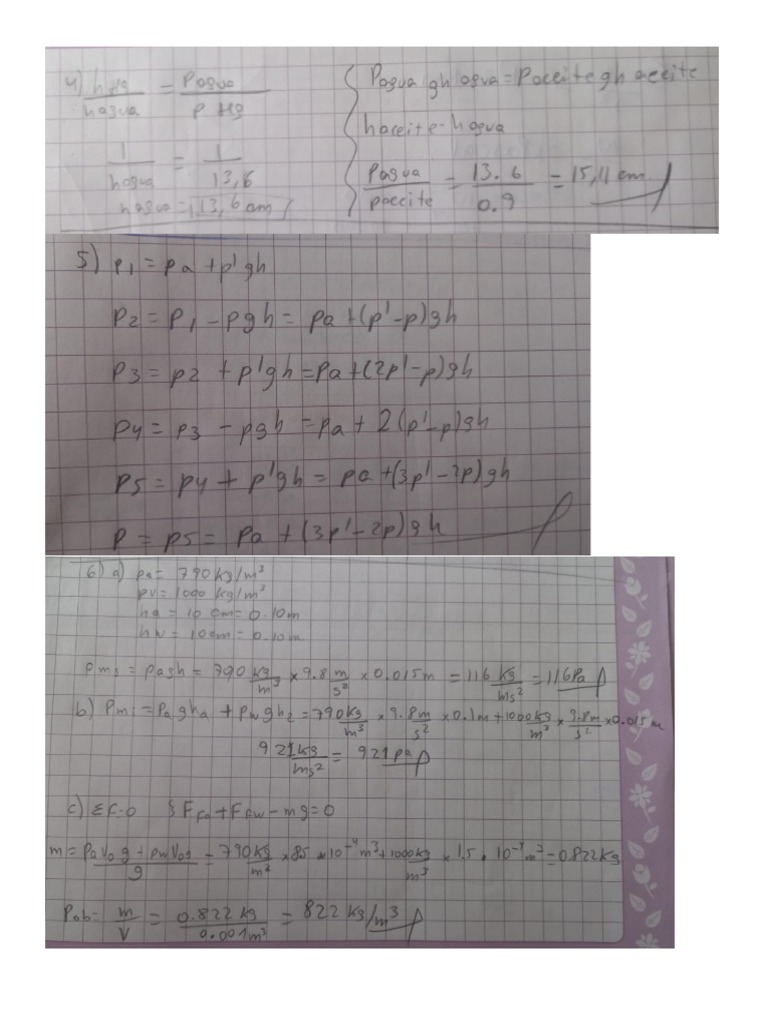 4) hHg/hagua = Pagua/P Hg
1/hagua = 1/13,6
hagua = 13,6 cm
Pagua gh agua = Paceite gh aceite
haceite - hagua
Pagua/paceite = 13.6/0.9 = 15,11 cm
5) p1 = pa + p'gh
p2 = p1 - pgh = pa + (p' - p)gh
p3 = p2 + p'gh = pa + (2p' - p)gh
p4 = p3 - pgh = pa + 2(p' - p)gh
p5 = p4 + p'gh = pa + (3p' - 2p)gh
p = p5 = pa + (3p' - 2p)gh
6) a) pa = 790 kg/m³
pv = 1000 kg/m³
ha = 10 cm = 0.10m
hw = 10cm = 0.10m
pms = pagh = 790 kg/m³ × 9.8 m/s² × 0.015m = 116 kg/ms² = 116Pa
b) Pmi = Pagha + pwgh2 = 790 kg/m³ × 9.8 m/s² × 0.1m + 1000 kg/m³ × 9.8 m/s² × 0.015 m
921 kg/ms² = 921 pa
c) ΣF-0 { Ffa + Ffw - mg = 0
m = paV0g + pwV0g/g = 790 kg/m² × 85 × 10⁻⁴m³ + 1000 kg/m³ × 1.5 · 10⁻⁴m³ = 0.822 kg
Pob = m/V = 0.822 kg/0.001m³ = 822 kg/m³